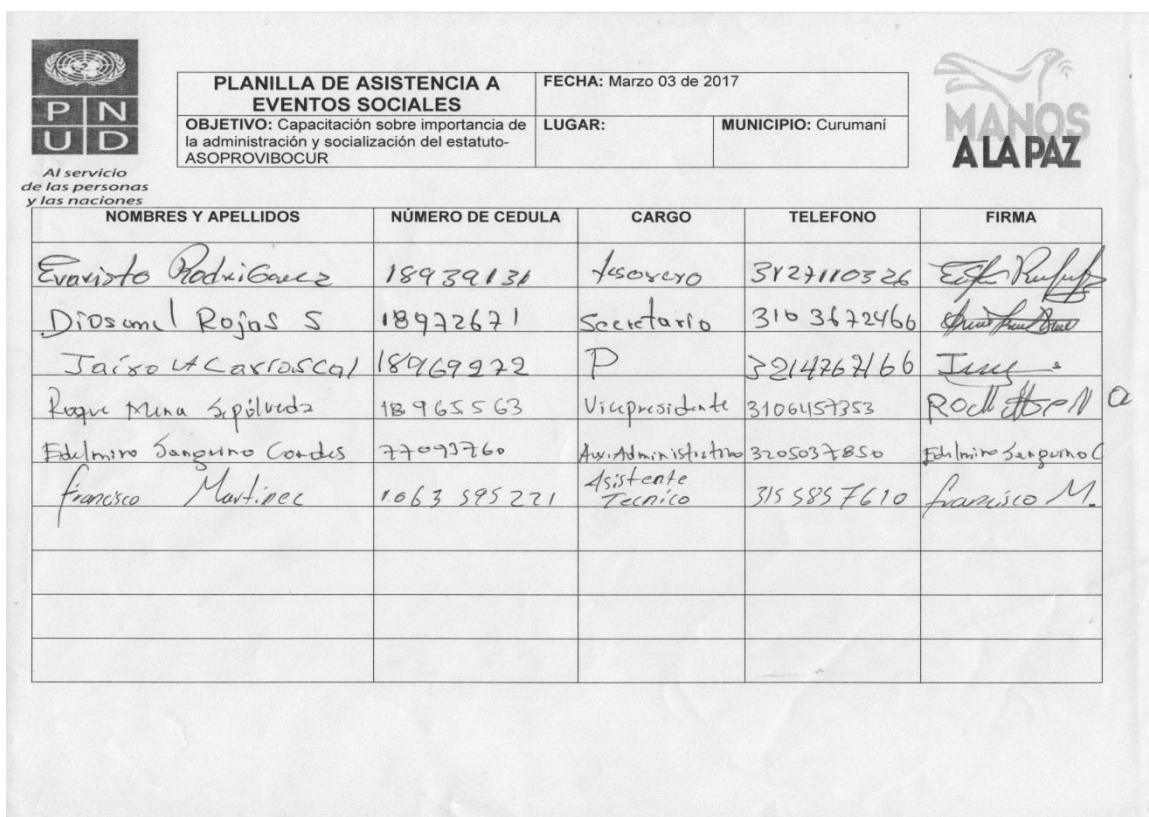 P N
U D
Al servicio
de las personas
y las naciones
PLANILLA DE ASISTENCIA A
EVENTOS SOCIALES
FECHA: Marzo 03 de 2017
OBJETIVO: Capacitación sobre importancia de
la administración y socialización del estatuto-
ASOPROVIBOCUR
LUGAR:
MUNICIPIO: Curumaní
MANOS
A LA PAZ
NOMBRES Y APELLIDOS NÚMERO DE CEDULA CARGO TELEFONO FIRMA
Evaristo Rodriguez 18939131 tesorero 3127110326
Diosemel Rojas S 18972671 Secretario 3103672466
Jairo A Carroscal 18969272 P 3214767166
Roque Mena Sepúlveda 18965563 Vicepresidente 3106457353
Edelmiro Sanguino Cordes 77093760 Aux. Administrativo 3205037850 Edelmiro Sanguino C
Francisco Martinez 1.063 595 221 Asistente Tecnico 315 585 7610 francisco M.